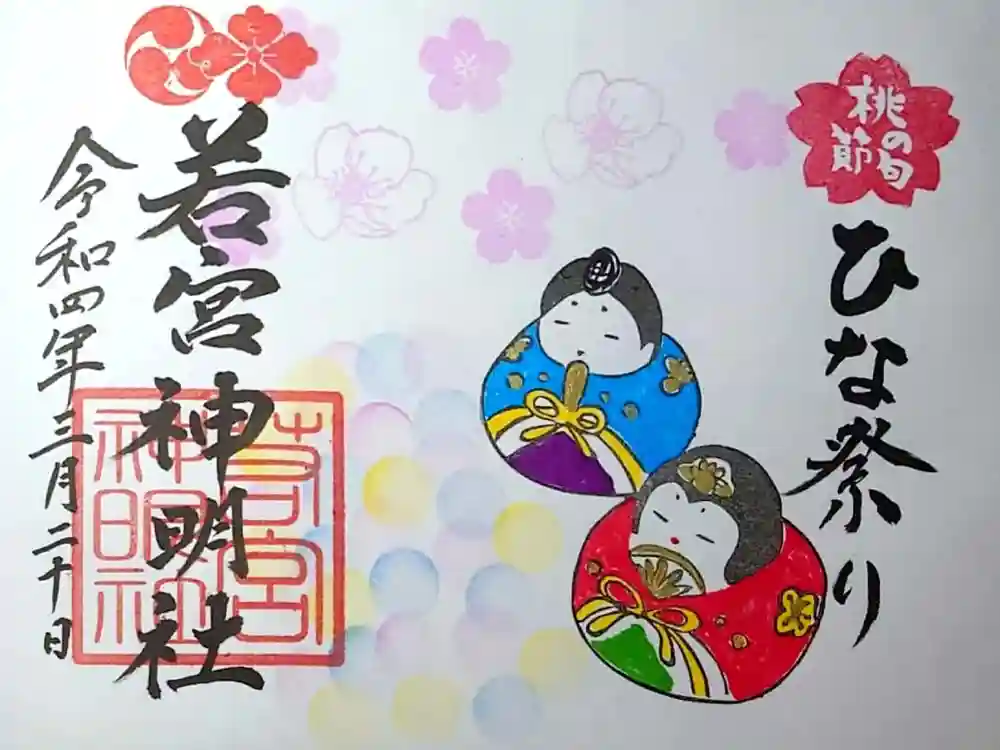 桃の節句
ひな祭り
若宮神明社
令和四年三月二十日
若宮
神明社